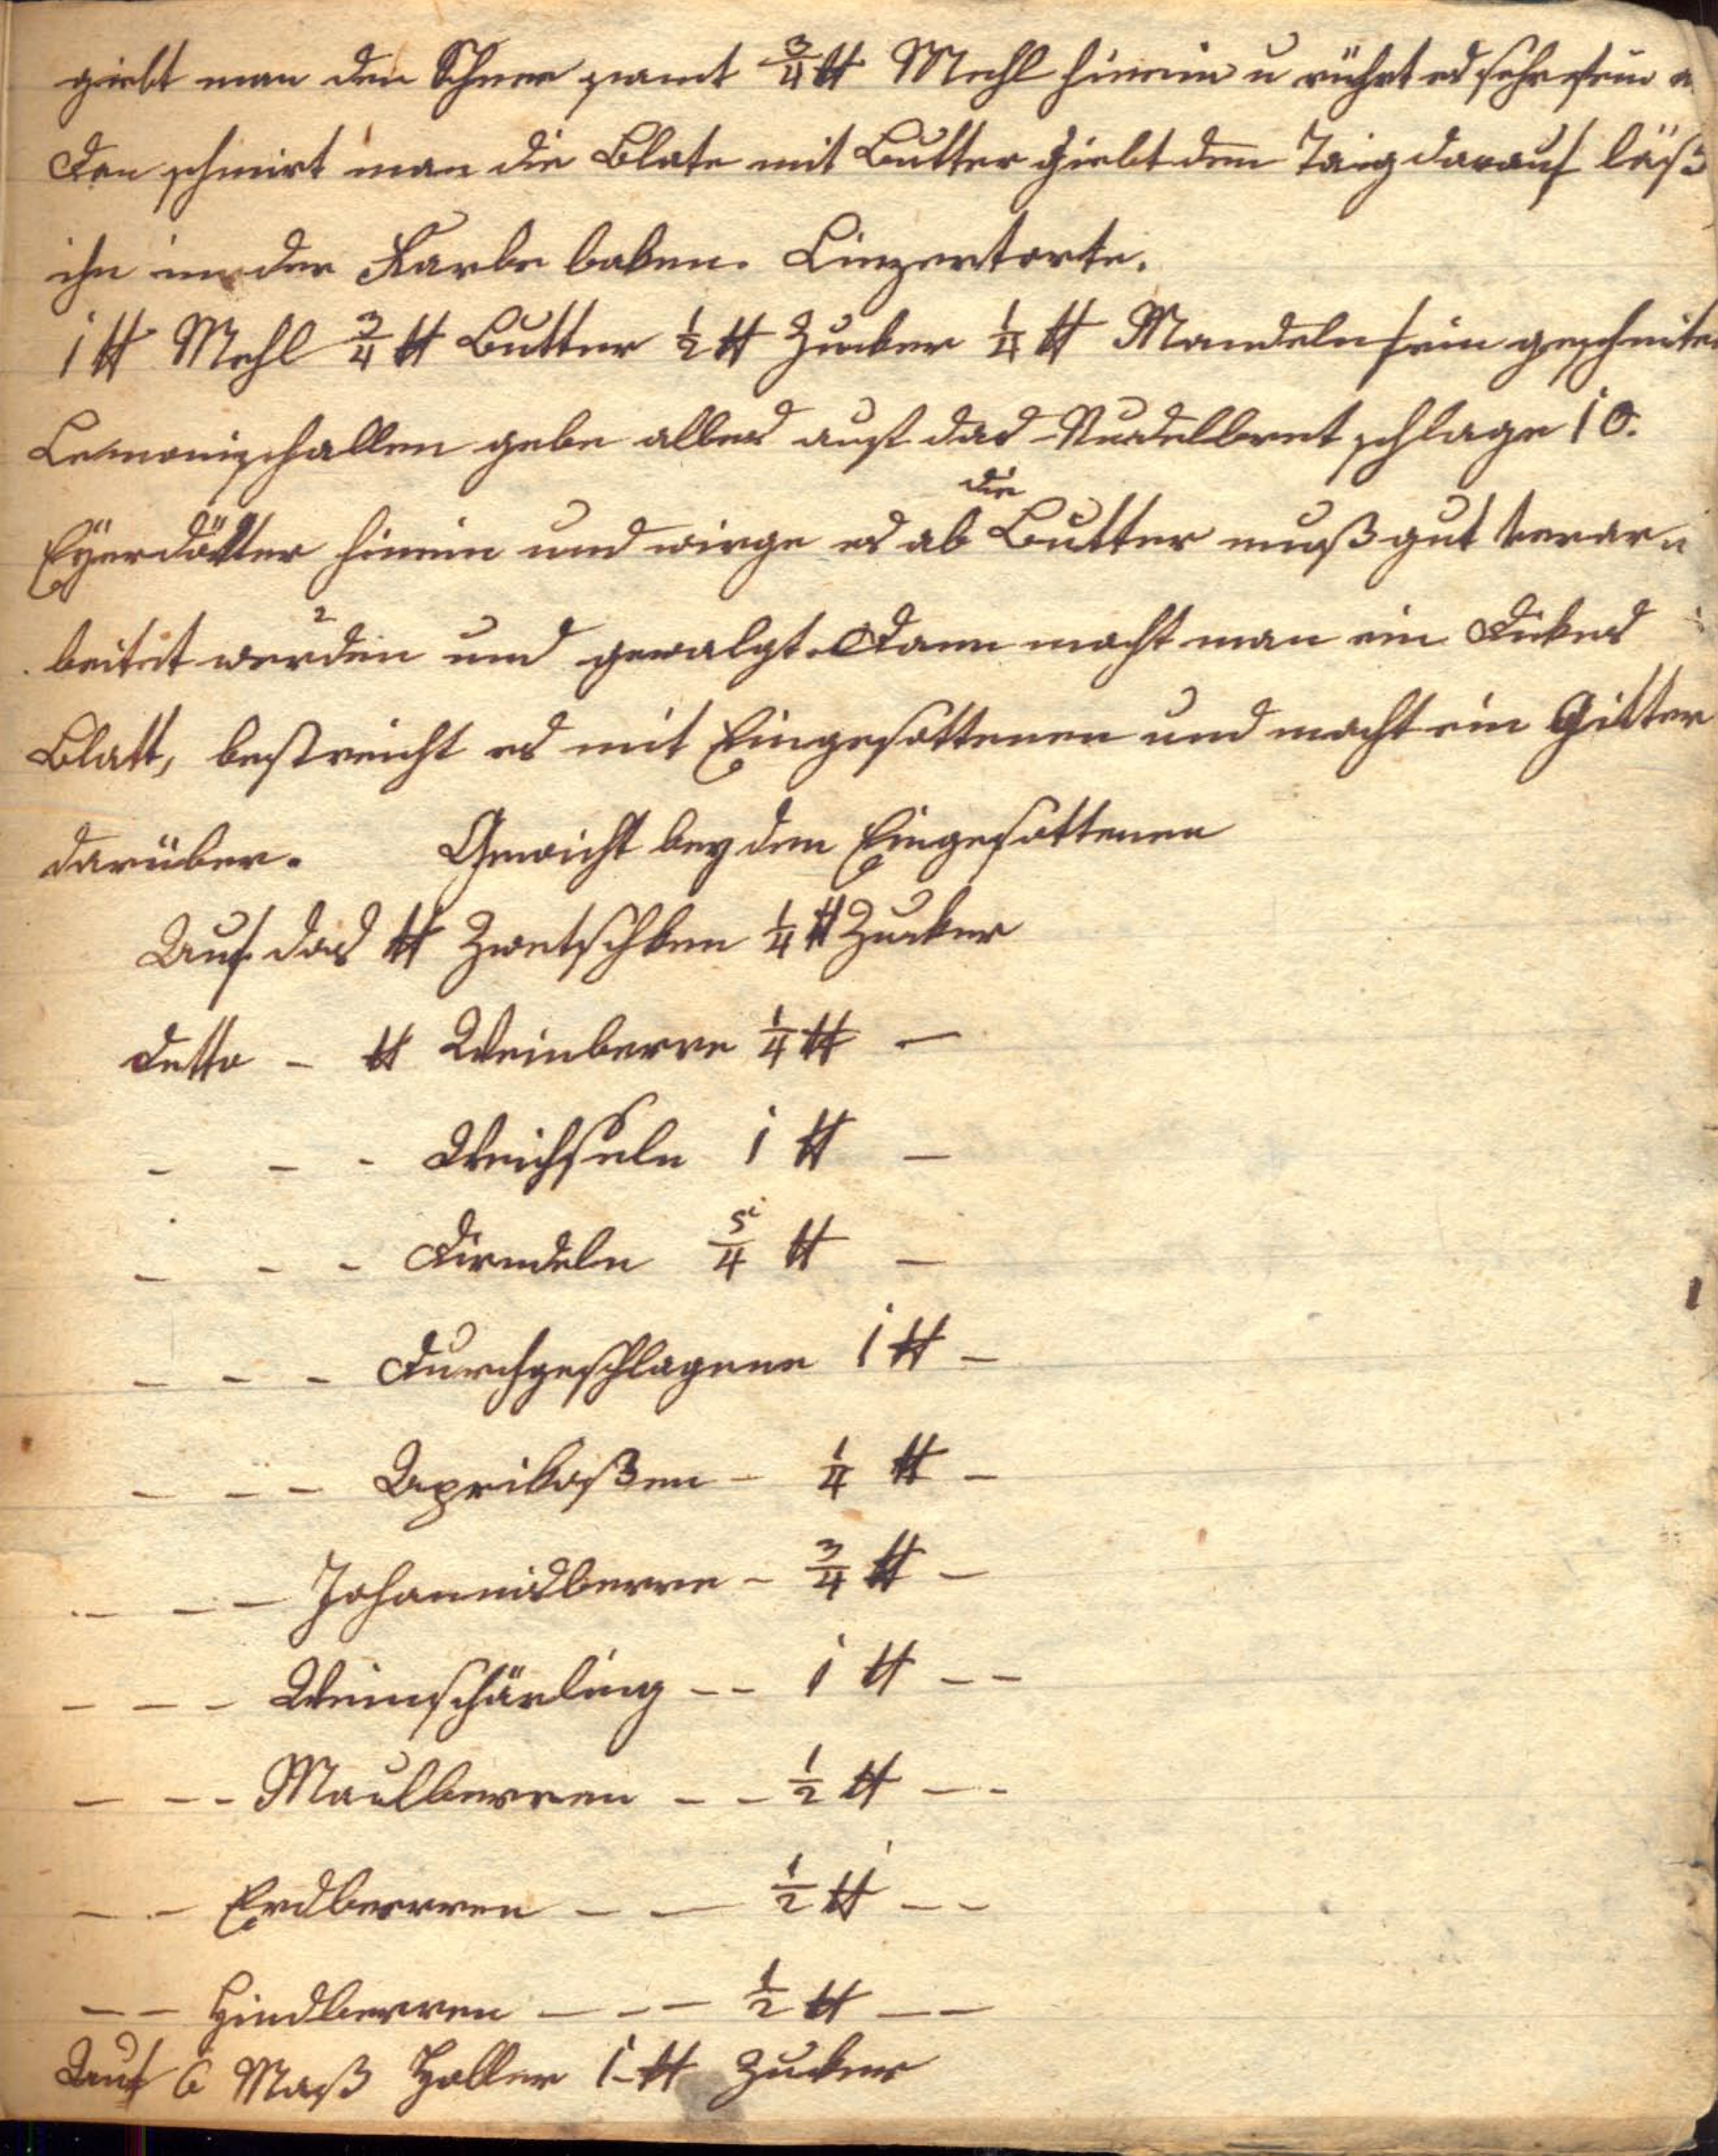 giebt man den Schnee samt 3/4 ℔ Mehl hinein u rührt es sehr fein
dan schmirt man die Blate mit Butter giebt den Taig darauf läß
ihn in der Farbe baken. Linzertorte.
1 ℔ Mehl 3/4 ℔ Butter 1/2 ℔ Zucker 1/4 ℔ Mandeln fein geschniten
Lemonischallen gebe alles auf das Nudelbret schlage 10.
Eÿerdötter hinein und wirge es ab die Butter muß gut verar=
beitet werden und gewalgt. Dann macht man ein dikes
Blatt, bestreicht es mit Eingesottenen und macht ein Gitter
darüber. Gewicht bey den Eingesottenen
Auf das ℔ Zwetschken 1/4 ℔ Zucker
detto - ℔ Weinberre 1/4 ℔ -
- - - Weichseln 1 ℔ -
- - - Dirndeln 5/4 ℔ -
- - - Durchgeschlagene 1 ℔ -
- - - Aprikoßen - 1/4 ℔ -
- - - Johannisberre - 3/4 ℔ -
- - - Weinschärling - - 1 ℔ - -
- - - Maulberren - - 1/2 ℔ - -
- - Erdberren - - 1/2 ℔ - -
- - Hindberren - - - 1/2 ℔ - -
Auf 6 Maß Holler 1 ℔ Zucker